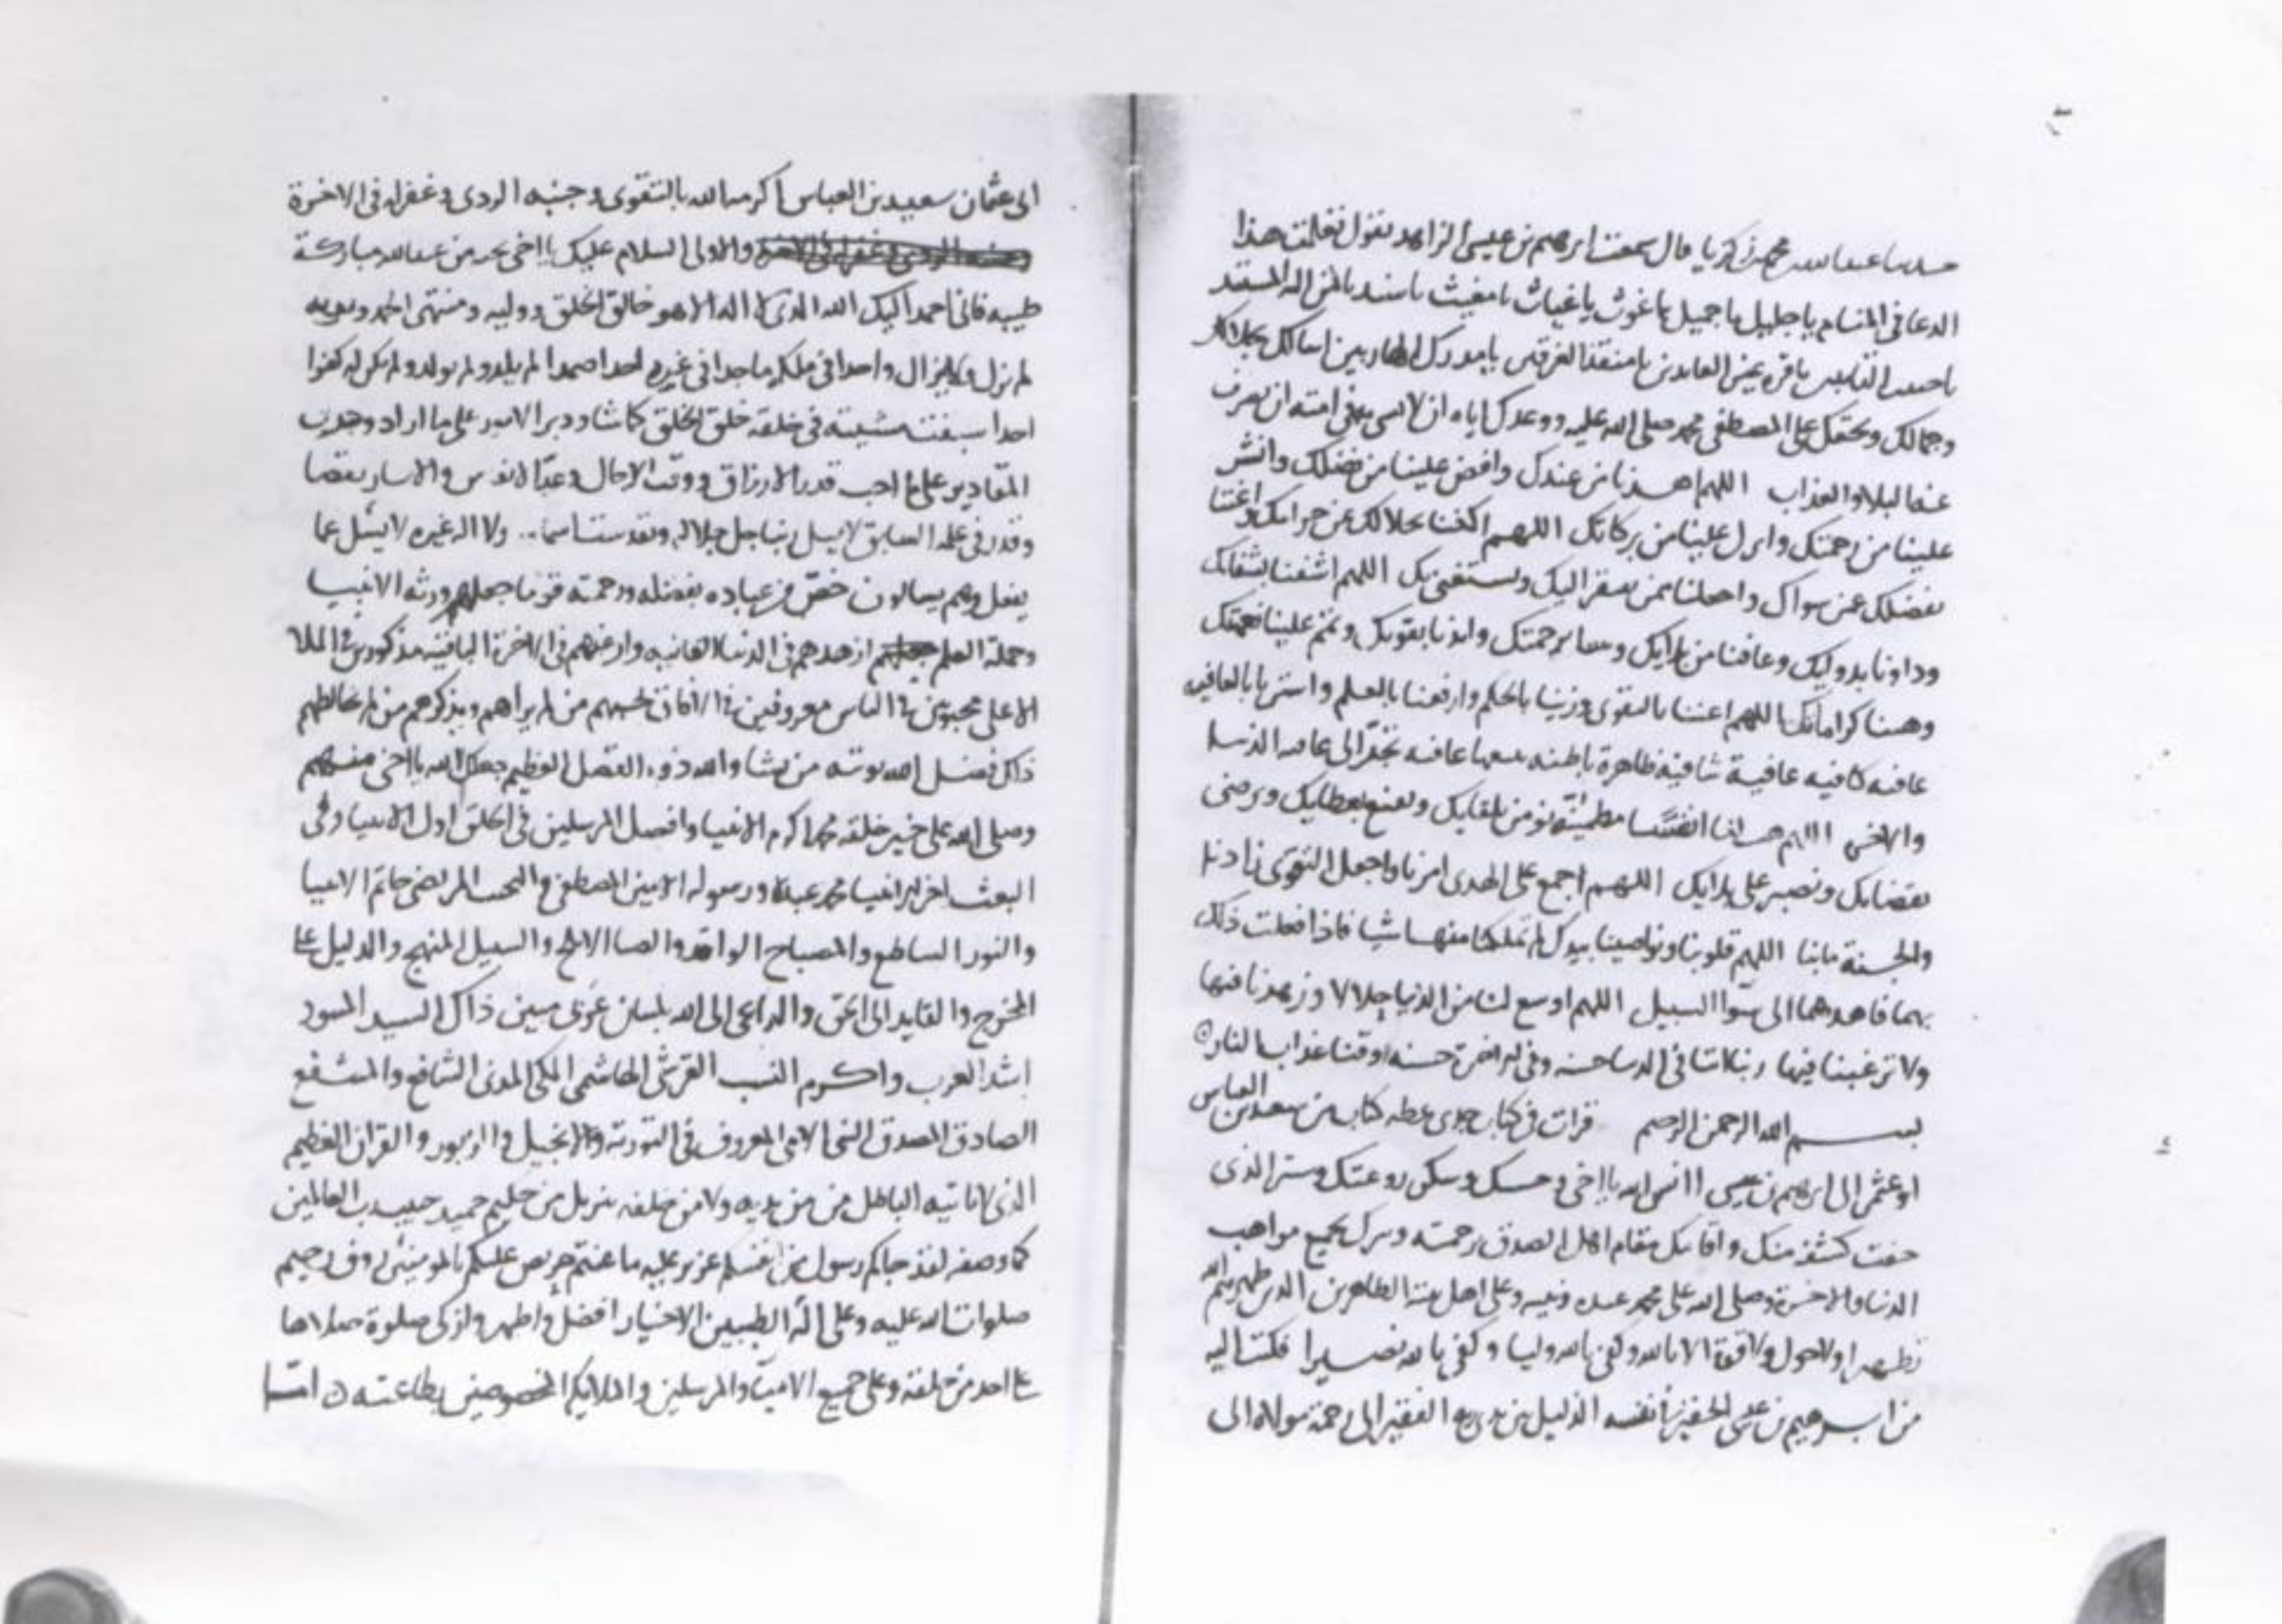 حدثنا عبد الله محمد بن زكريا قال سمعت ابرهيم بن عيسى الزاهد يقول تعلمت هذا
الدعا في المنام يا جليل يا جميل يا غوث يا غياث يا مغيث يا سند يا من اليه المستند
يا قرة عين العابدين يا منقذ الغرقى يا مدرك الهاربين اسالك بجلالك
وجمالك وبحقك على المصطفى محمد صلى الله عليه ووعدك اياه ان في امته ان تصرف
عنا البلا والعذاب اللهم اهدنا من عندك وافض علينا من فضلك وانشر
علينا من رحمتك وانزل علينا من بركاتك اللهم اكفنا بحلالك عن حرامك واغننا
بفضلك عن سواك واجعلنا ممن يفتقر اليك ويستغني بك اللهم اشفنا بشفائك
وداونا بدوايك وعافنا من بلايك برحمتك وايدنا بقوتك وتمم علينا نعمتك
وهبنا كراماتك اللهم اعننا بالتقوى وزينا بالحكم وارفعنا بالعلم واسترنا بالعافيه
عافيه كافيه عافية شافية ظاهرة باطنه عافيه الى عافيه الدنيا
والاخره اللهم هب لنا انفسا مطمينة تومن بلقايك وتقنع بعطايك وترضى
بقضايك وتصبر على بلايك اللهم اجمع على الهدى امرنا واجعل التقوى زادنا
والجنة مابنا اللهم قلوبنا ونواصينا بيدك لم تملكنا منها شيا فاذا فعلت ذلك
بهما فاهدهما الى سوا السبيل اللهم اوسع لنا من الدنيا حلالا وزهدنا فيها
ولا ترغبنا فيها ربنا اتنا في الدنيا حسنه وفي الاخرة حسنه وقنا عذاب النار
بسم الله الرحمن الرحيم قرات في كتاب جدي بخطه كتاب من سعيد بن العباس
ابو عثمن الى ابرهيم بن عيسى انس الله يا اخي وحستك وسكن روعتك وستر الذي
خفت كشفه منك واقامك مقام اهل الصدق برحمته وسرك بجميع مواهب
الدنيا والاخرة وصلى الله على محمد عبده ونبيه وعلى اهل بيته الطاهرين الذين طهرهم الله
تطهيرا ولا حول ولا قوة الا بالله وكفى بالله وليا وكفى بالله نصيرا فكتب اليه
من ابرهيم بن عيسى الحقير في نفسه الذليل بين يدي ربه الفقير الى رحمة مولاه الى
ابي عثمان سعيد بن العباس اكرمه الله بالتقوى وجنبه الردى وغفر له في الاخرة
والاولى السلام عليك يا اخي تحية من عند الله مباركة
طيبه فاني احمد اليك الله الذي لا اله الا هو خالق الخلق ووليه ومنتهى الحمد
لم يزل ولا يزال واحدا في ملكه ماجدا في احدا صمدا لم يلد ولم يولد ولم يكن له كفوا
احدا سبقت مشيته في خلقه خلق الخلق كما شا ودبر الامور على ما اراد
المقادير على ما احب قدر الارزاق ووقت الاجال وعد الانفس
وقدر في علمه السابق ربنا جل جلاله وتقدست اسماه ولا اله غيره لا يسل عما
يفعل وهم يسالون خص من عباده بفضله ورحمته قوما جعلهم ورثة الانبيا
وحملة العلم ازهدهم في الدنيا الفانيه وارغبهم في الاخرة الباقية مذكورين في الملا
الاعلى محبوبين في الناس معروفين في الافاق يحبهم من لم يراهم ويذكرهم من لم يخالطهم
ذلك فضل الله يوتيه من يشا والله ذو الفضل العظيم جعلك الله يا اخي منهم
وصلى الله على خير خلقه محمد اكرم الانبيا وافضل المرسلين في الخلق اول الانبيا وفي
البعث اخر الانبيا محمد عبده ورسوله الامين المصطفى والمرتضى خاتم الانبيا
والنور الساطع والمصباح الواقد والسبيل المنهج والدليل على
المخرج والقايد الى الحق والداعي الى الله بلسان عربي مبين ذاك السيد المسود
اشد العرب واكرم النسب القرشي الهاشمي المكي المدني الشافع والمشفع
الصادق المصدق النبي الامي المعروف في التورية والانجيل والزبور والقران العظيم
الذي لا ياتيه الباطل من بين يديه ولا من خلفه تنزيل من حكيم حميد حبيب رب العالمين
كما وصفه لقد جاكم رسول من انفسكم عزيز عليه ما عنتم حريص عليكم بالمومنين روف رحيم
صلوات الله عليه وعلى اله الطيبين الاخيار افضل واطهر وازكى صلوة صلاها
على احد من خلقه وعلى جميع الانبيا والمرسلين والملايكة المخصوصين بطاعته امـا